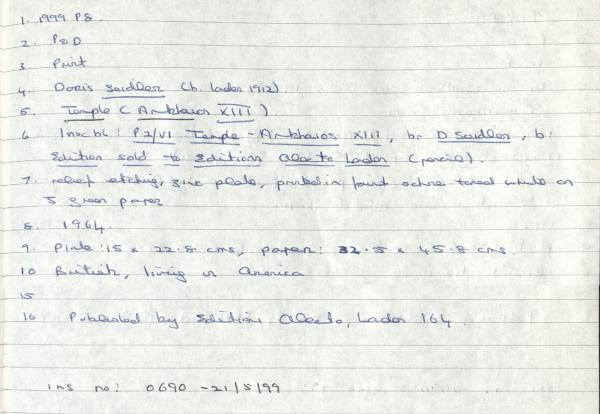 1. 1999 P8.
2. P&D
3 Print
4. Doris Seidler (b. London 1912).
5. Temple (Arkhaios XIII)
6 Inscbl: P2/VI Temple - Arkhaios XIII, br D Seidler, b:
Edition sold to Editions Alecto London (pencil).
7. relief etching, zinc plate, printed in faint ochre toned white on
green paper
8. 1964.
9. Plate: 15 x 22.8 cms, paper: 32.5 x 45.8 cms.
10 British, living in America
15
16 Published by Editions Alecto, London 164.
ins no: 0690 - 21/5/99